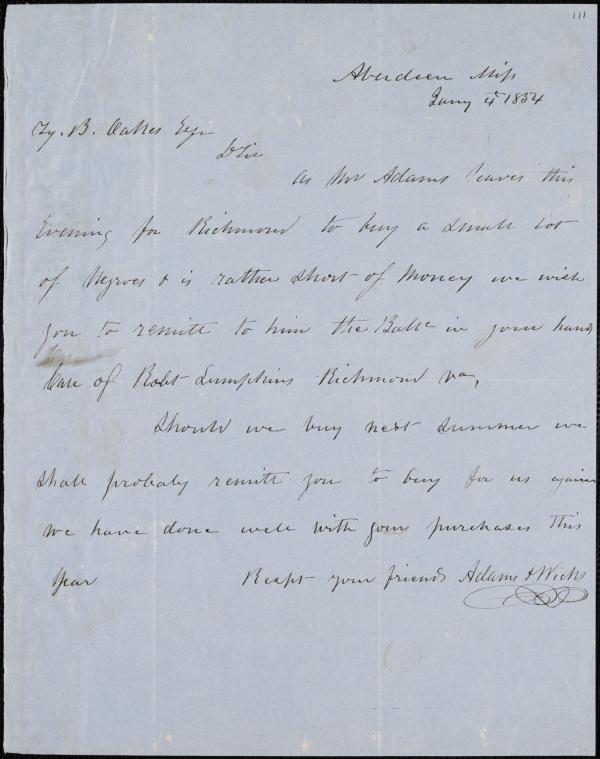 111
Aberdeen Miss
Jany 4th 1854
Zy. B. Oakes Esqr
D Sir
as Mr Adams leaves this
Evening for Richmond to buy a small lot
of Negroes & is rather short of Money we wish
you to remitt to him the Balce in your hands
Care of Robt Lumpkins Richmond Va,
Should we buy next summer we
shall probaly remitt you to buy for us again
we have done well with your purchases this
Year Respt your friends Adams & Wicks